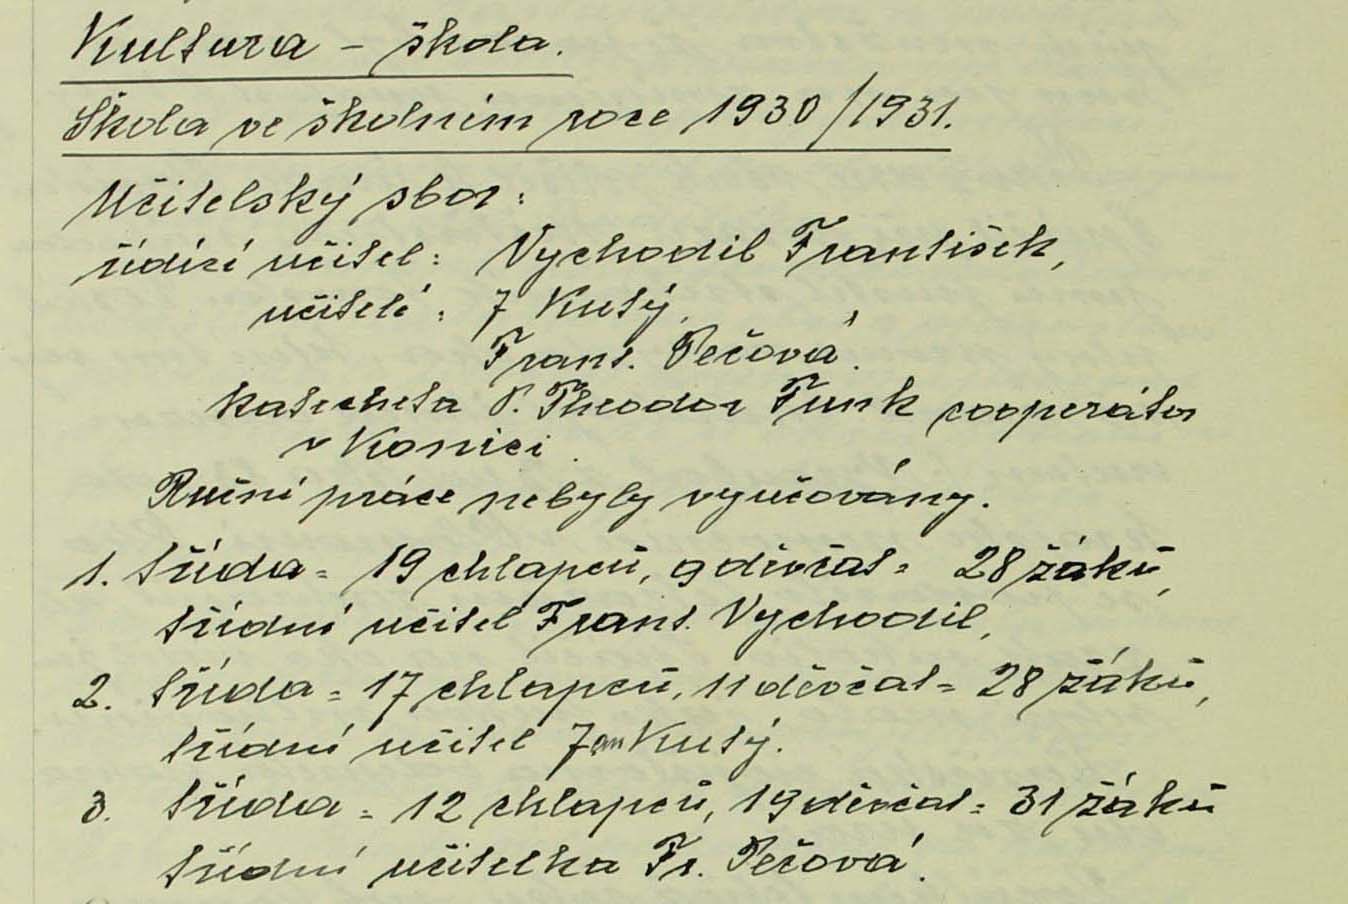 Kultura – škola.
Škola ve školním roce 1930/1931.
Učitelský sbor:
řídící učitel: Vychodil František,
učitelé: J Kusý,
Frant. Pečová.
katecheta P. Theodor Funk cooperátor
v Konici.
Ruční práce nebyly vyučovány.
1. třída = 19 chlapců, 9 děvčat = 28 žáků,
třídní učitel Frant. Vychodil,
2. třída = 17 chlapců, 11 děvčat = 28 žáků,
třídní učitel Jan Kusý.
3. třída = 12 chlapců, 19 děvčat = 31 žáků
třídní učitelka Fr. Pečová.